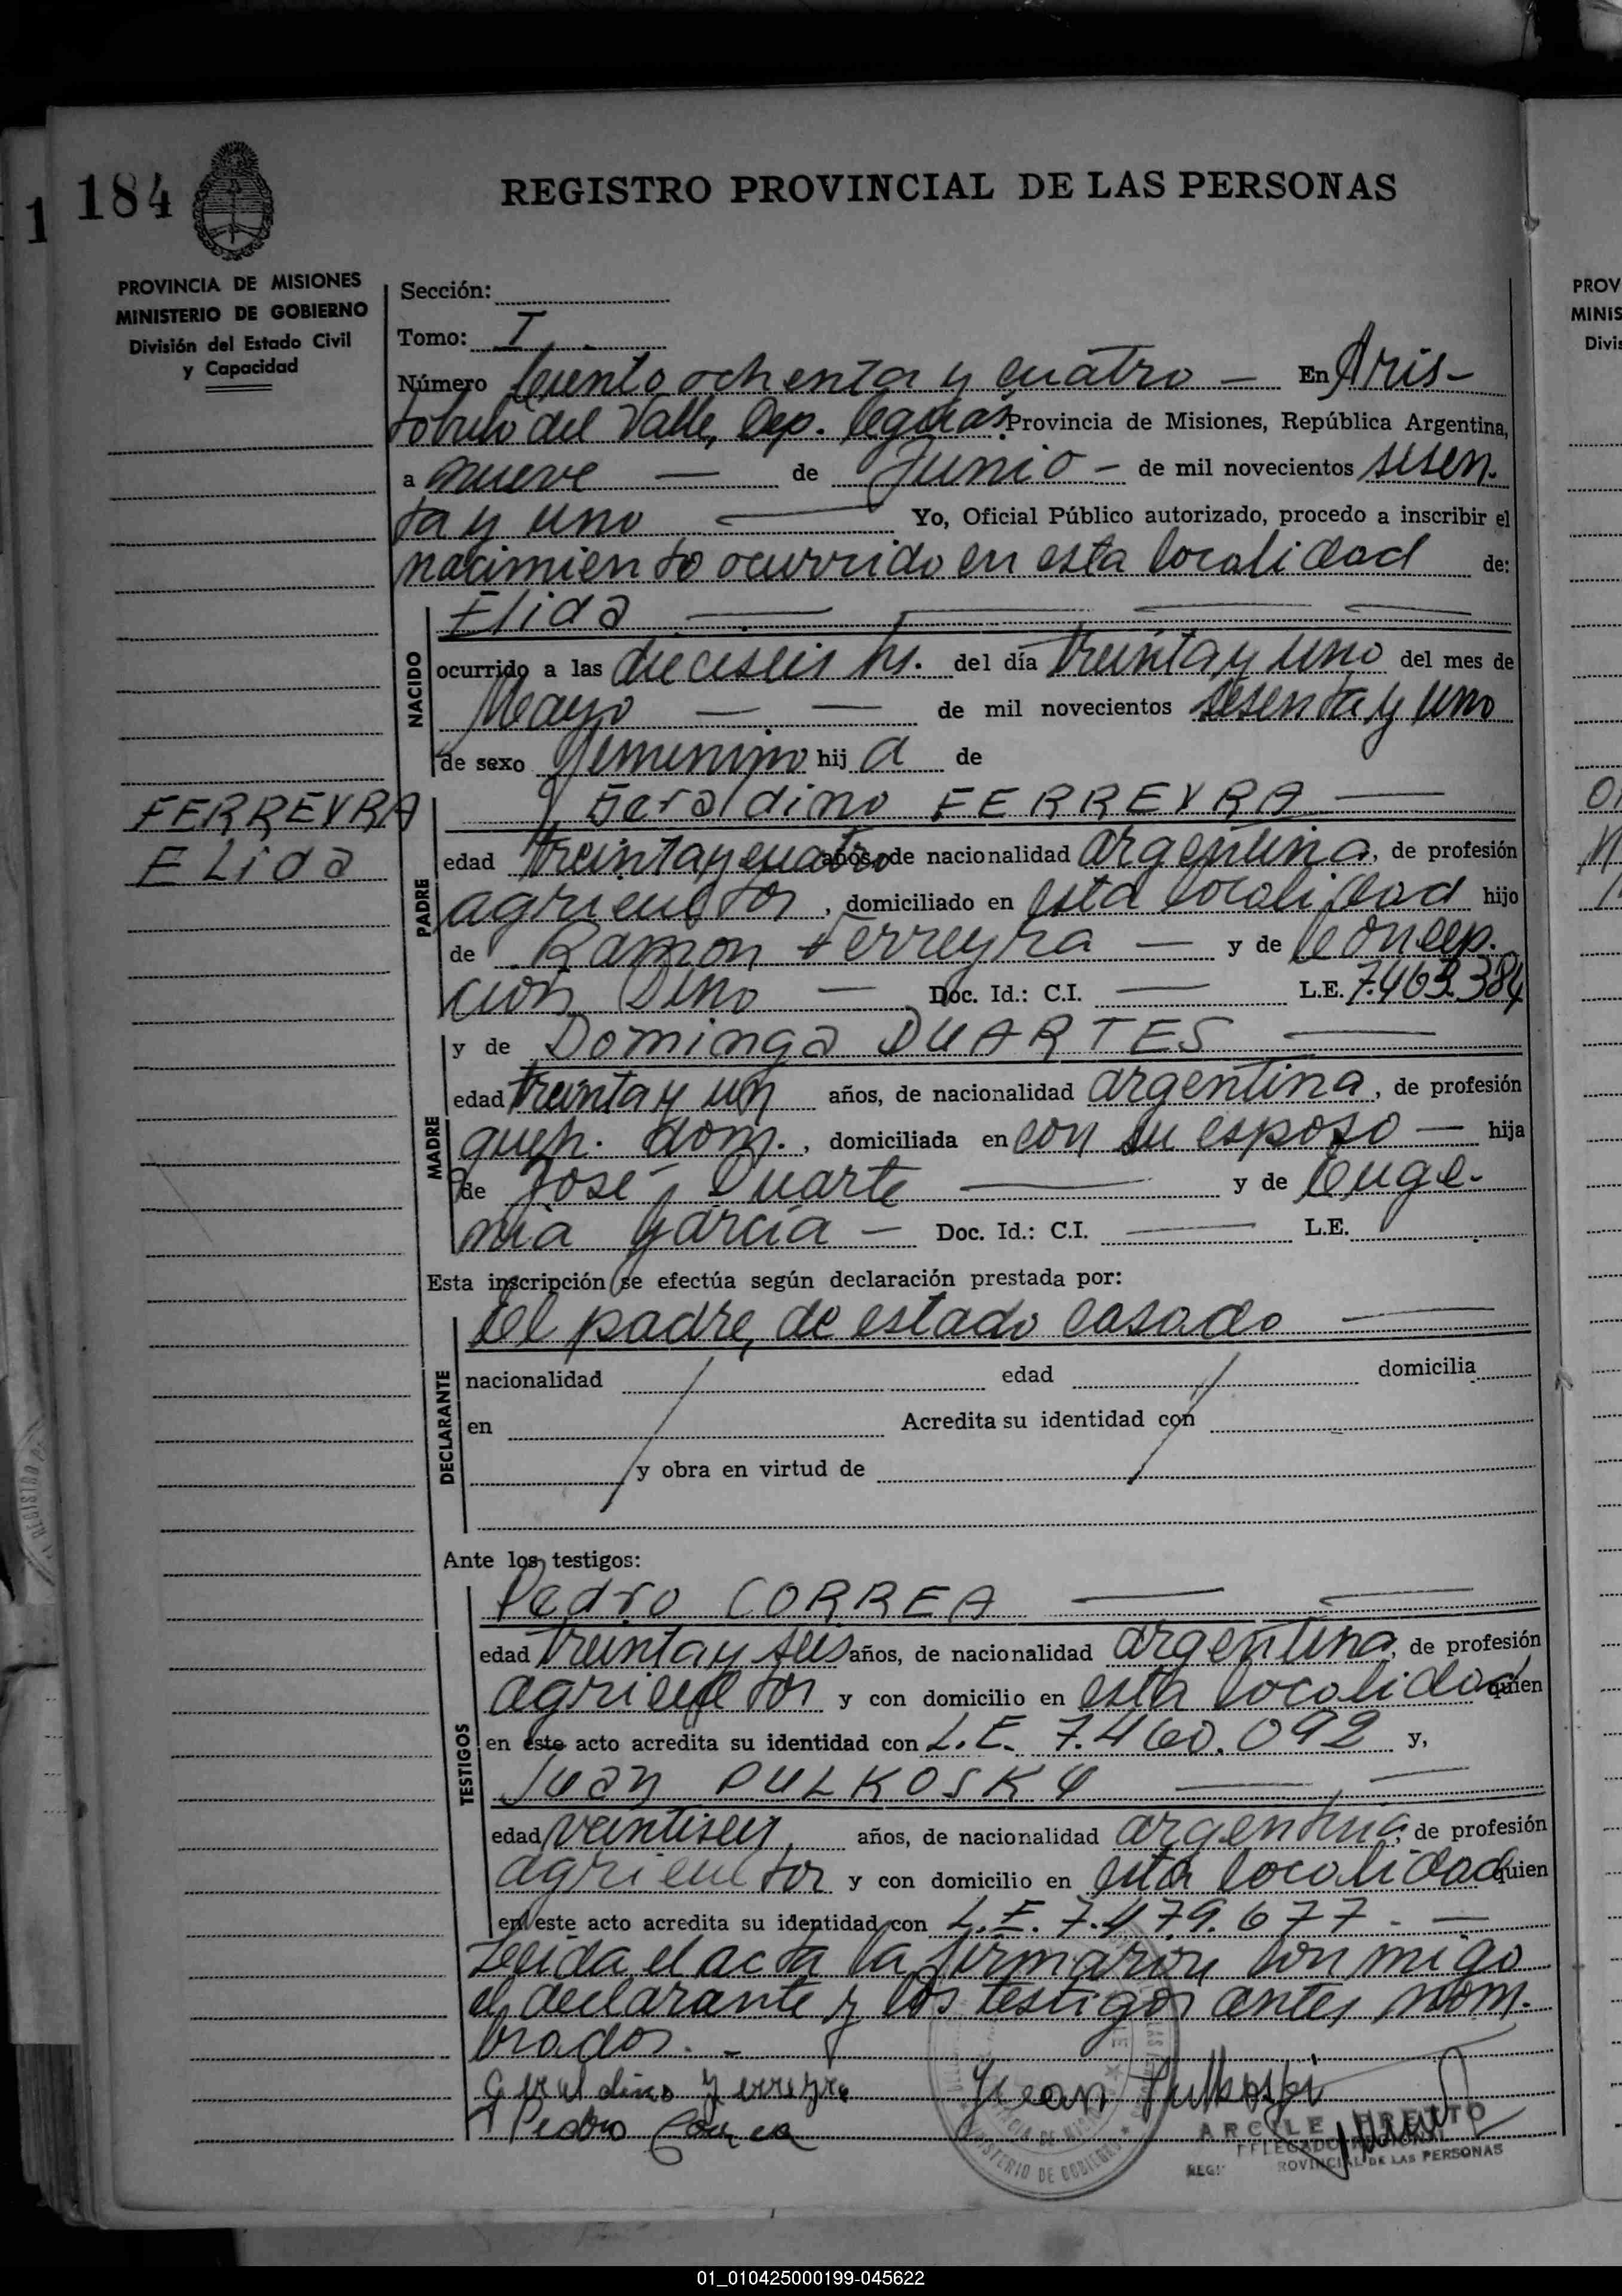 184
1
REGISTRO PROVINCIAL DE LAS PERSONAS
PROVINCIA DE MISIONES
MINISTERIO DE GOBIERNO
División del Estado Civil
y Capacidad
PROV
MINIS
Divis
Sección:
Tomo: I
Número Ciento ochenta y cuatro — En Aris-
tobulo del Valle, Dep. Caguas Provincia de Misiones, República Argentina,
a nueve — de Junio — de mil novecientos sesen-
ta y uno — Yo, Oficial Público autorizado, procedo a inscribir el
nacimiento ocurrido en esta localidad de:
NACIDO
Elida — — — —
ocurrido a las dieciseis hs. del día treinta y uno del mes de
Mayo — — de mil novecientos sesenta y uno
de sexo femenino hij a de
FERREYRA
Elida
PADRE
Geraldino FERREYRA —
edad treinta y cuatro años, de nacionalidad argentina, de profesión
agricultor, domiciliado en esta localidad hijo
de Ramon Ferreyra — y de Concep-
cion Dino — Doc. Id.: C.I. — L.E. 7.463.384
MADRE
y de Dominga DUARTES —
edad treinta y un años, de nacionalidad argentina, de profesión
queh. dom., domiciliada en con su esposo — hija
de José Duarte — y de Euge-
nia Garcia — Doc. Id.: C.I. — L.E.
Esta inscripción se efectúa según declaración prestada por:
DECLARANTE
El padre, de estado casado —
nacionalidad edad domicilia
en Acredita su identidad con
y obra en virtud de
Ante los testigos:
TESTIGOS
Pedro CORREA — —
edad treinta y seis años, de nacionalidad argentina, de profesión
agricultor y con domicilio en esta localidad quien
en este acto acredita su identidad con L.E. 7.460.092 y,
Juan PULKOSKY — —
edad veintiseis, años, de nacionalidad argentina, de profesión
agricultor y con domicilio en esta localidad quien
en este acto acredita su identidad con L.E. 7.479.677. —
Leida el acta la firmaron conmigo
el declarante y los testigos antes nom-
brados. -
Geraldino Ferreyra Juan Pulkoski
Pedro Correa
DELEGADO REGIONAL
PROVINCIAL DE LAS PERSONAS
MINISTERIO DE GOBIERNO
01_010425000199-045622